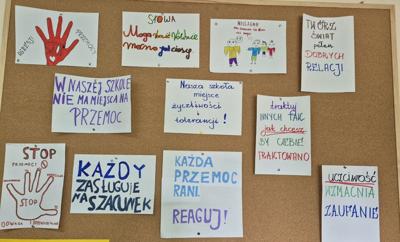 SŁOWA
Mogą
można
TWÓRZ
ŚWIAT
pełen
DOBRYCH
RELACJI
W NASZEJ SZKOLE
NIE MA MIEJSCA NA
PRZEMOC
Nasza szkoła
miejsce
życzliwości i
tolerancji!
traktuj
INNYCH TAK
jak chcesz
BY CIEBIE
TRAKTOWANO
STOP
PRZEMOCY
STOP
KAŻDY
ZASŁUGUJE
NA SZACUNEK
KAŻDA
PRZEMOC
RANI.
REAGUJ!
UCZCIWOŚĆ
WZMACNIA
ZAUFANIE